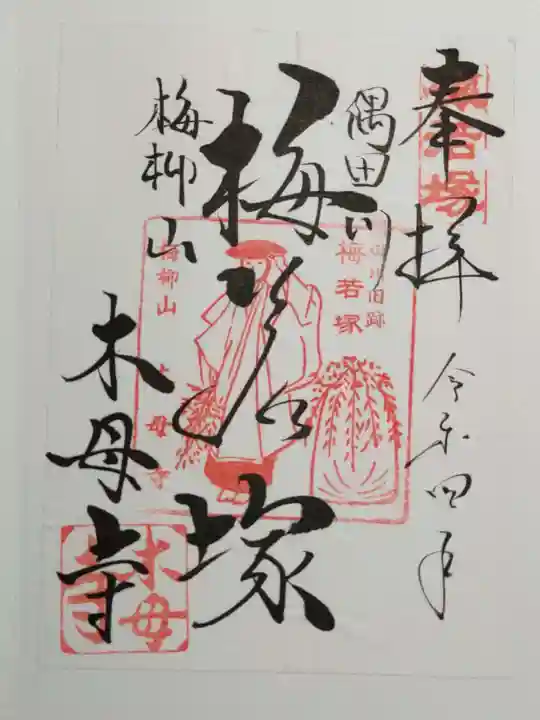 奉拝
令和四年
梅若塚
隅田川
梅若塚
梅柳山
木母寺
隅田川旧跡
梅若塚
梅柳山
木母寺
木母寺